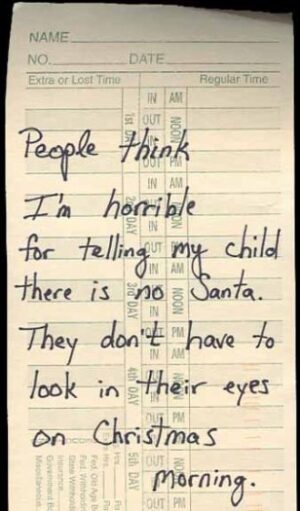 NAME
NO. DATE
Extra or Lost Time Regular Time
IN AM
1st DAY OUT NOON
People think
OUT PM
IN AM
I'm horrible
2nd DAY IN
for telling my child
OUT PM
IN AM
there is no Santa.
3rd DAY NOON
IN
They don't have to
OUT PM
IN AM
look in their eyes
4th DAY OUT NOON
IN
on Christmas
OUT PM
5th DAY OUT NOON
Morning.
OUT PM